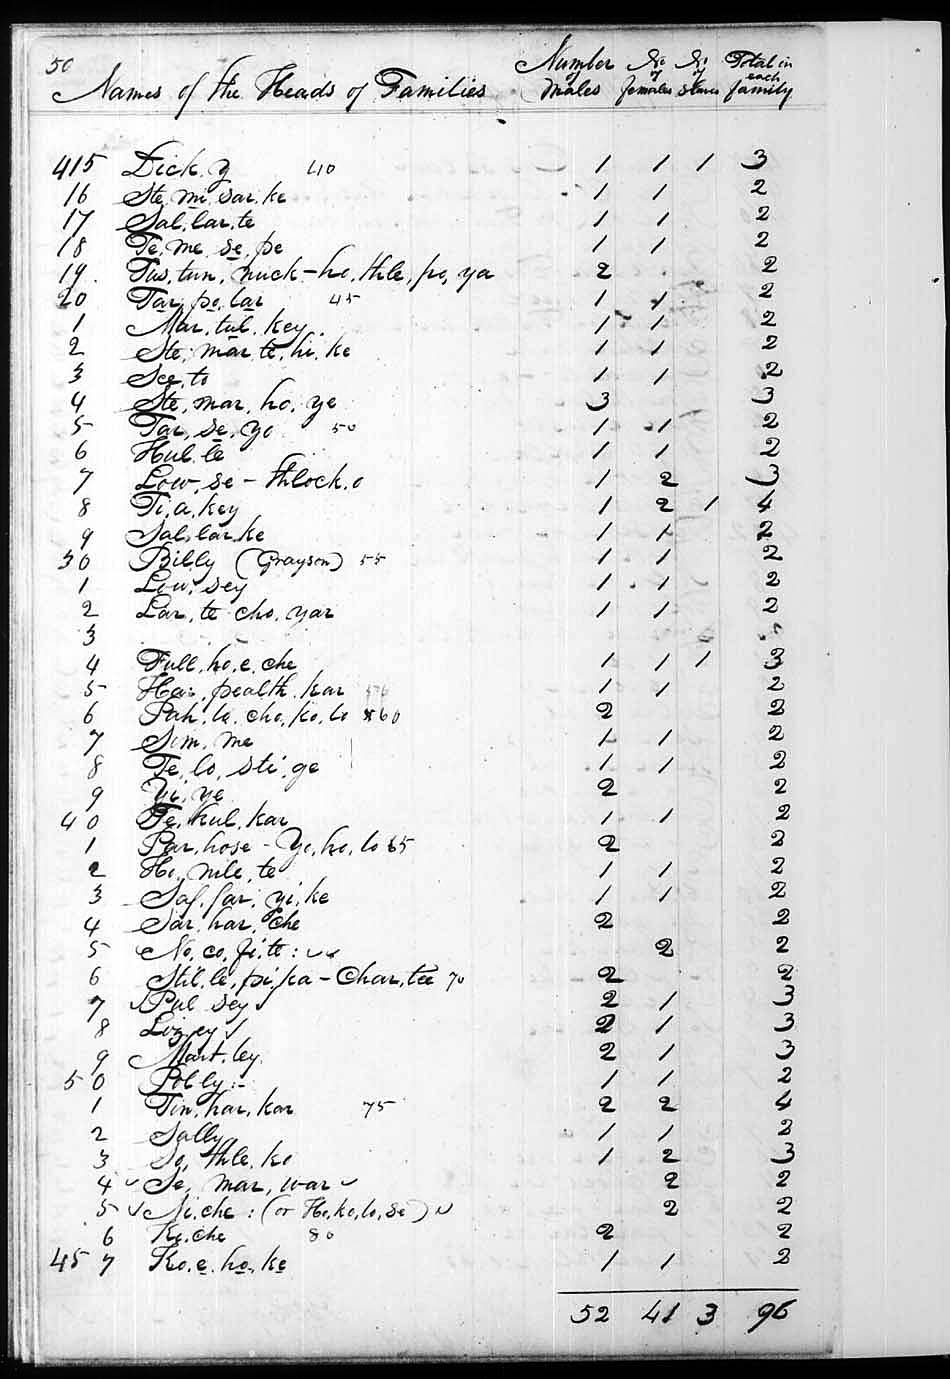 50
Names of the Heads of Families Number of Males No of females No of Slaves Total in each family
415 Dick.y 40 1 1 1 3
16 Ste,mi,sar,ke 1 1 2
17 Sal,lar,te 1 1 2
18 Te,me,se,pe 1 1 2
19. Tus,tun,nuck-ho,thle,po,ya 2 2
20 Tar,po,lar 45 1 1 2
1 Mar,tul,key. 1 1 2
2 Ste,mar,te,hi,ke 1 1 2
3 See,to 1 1 2
4 Ste,mar,ho,ye 3 3
5 Tar,se,yo 50 1 1 2
6 Hul.le 1 1 2
7 Low,se-thlock.o 1 2 3
8 Ti,a,key 1 2 1 4
9 Sal,lar,ke 1 1 2
30 Billy (Grayson) 55 1 1 2
1 Low,sey 1 1 2
2 Lar,te cho,yar 1 1 2
3
4 Full,ho,e,che 1 1 1 3
5 Har,pealth,kar 1 1 2
6 Pah,lo,cho,ko,lo 60 2 2
7 Sim,me 1 1 2
8 Te,lo,sti,ge 1 1 2
9 Yi,ye 2 2
40 Te,kul,kar 1 1 2
1 Par,hose-Yo,ho,lo 65 2 2
2 Ho,nile,te 1 1 2
3 Saf,far,yi,ke 1 1 2
4 Sar,har,che 2 2
5 No,co,fi,te: 2 2
6 Stil,le,pi,ka-Char,tee 70 2 2
7 Pul sey 2 1 3
8 Lizey 2 1 3
9 Mart,ley. 2 1 3
50 Polly:- 1 1 2
1 Tin,har,kar 75 2 2 4
2 Sally 1 1 2
3 So,thle,ko 1 2 3
4 Se,mar,war 2 2
5 Ni.che:(or Ho,ko,lo,se) 2 2
6 Ke,che 80 2 2
457 Ko.e.ho.ke 1 1 2
52 41 3 96